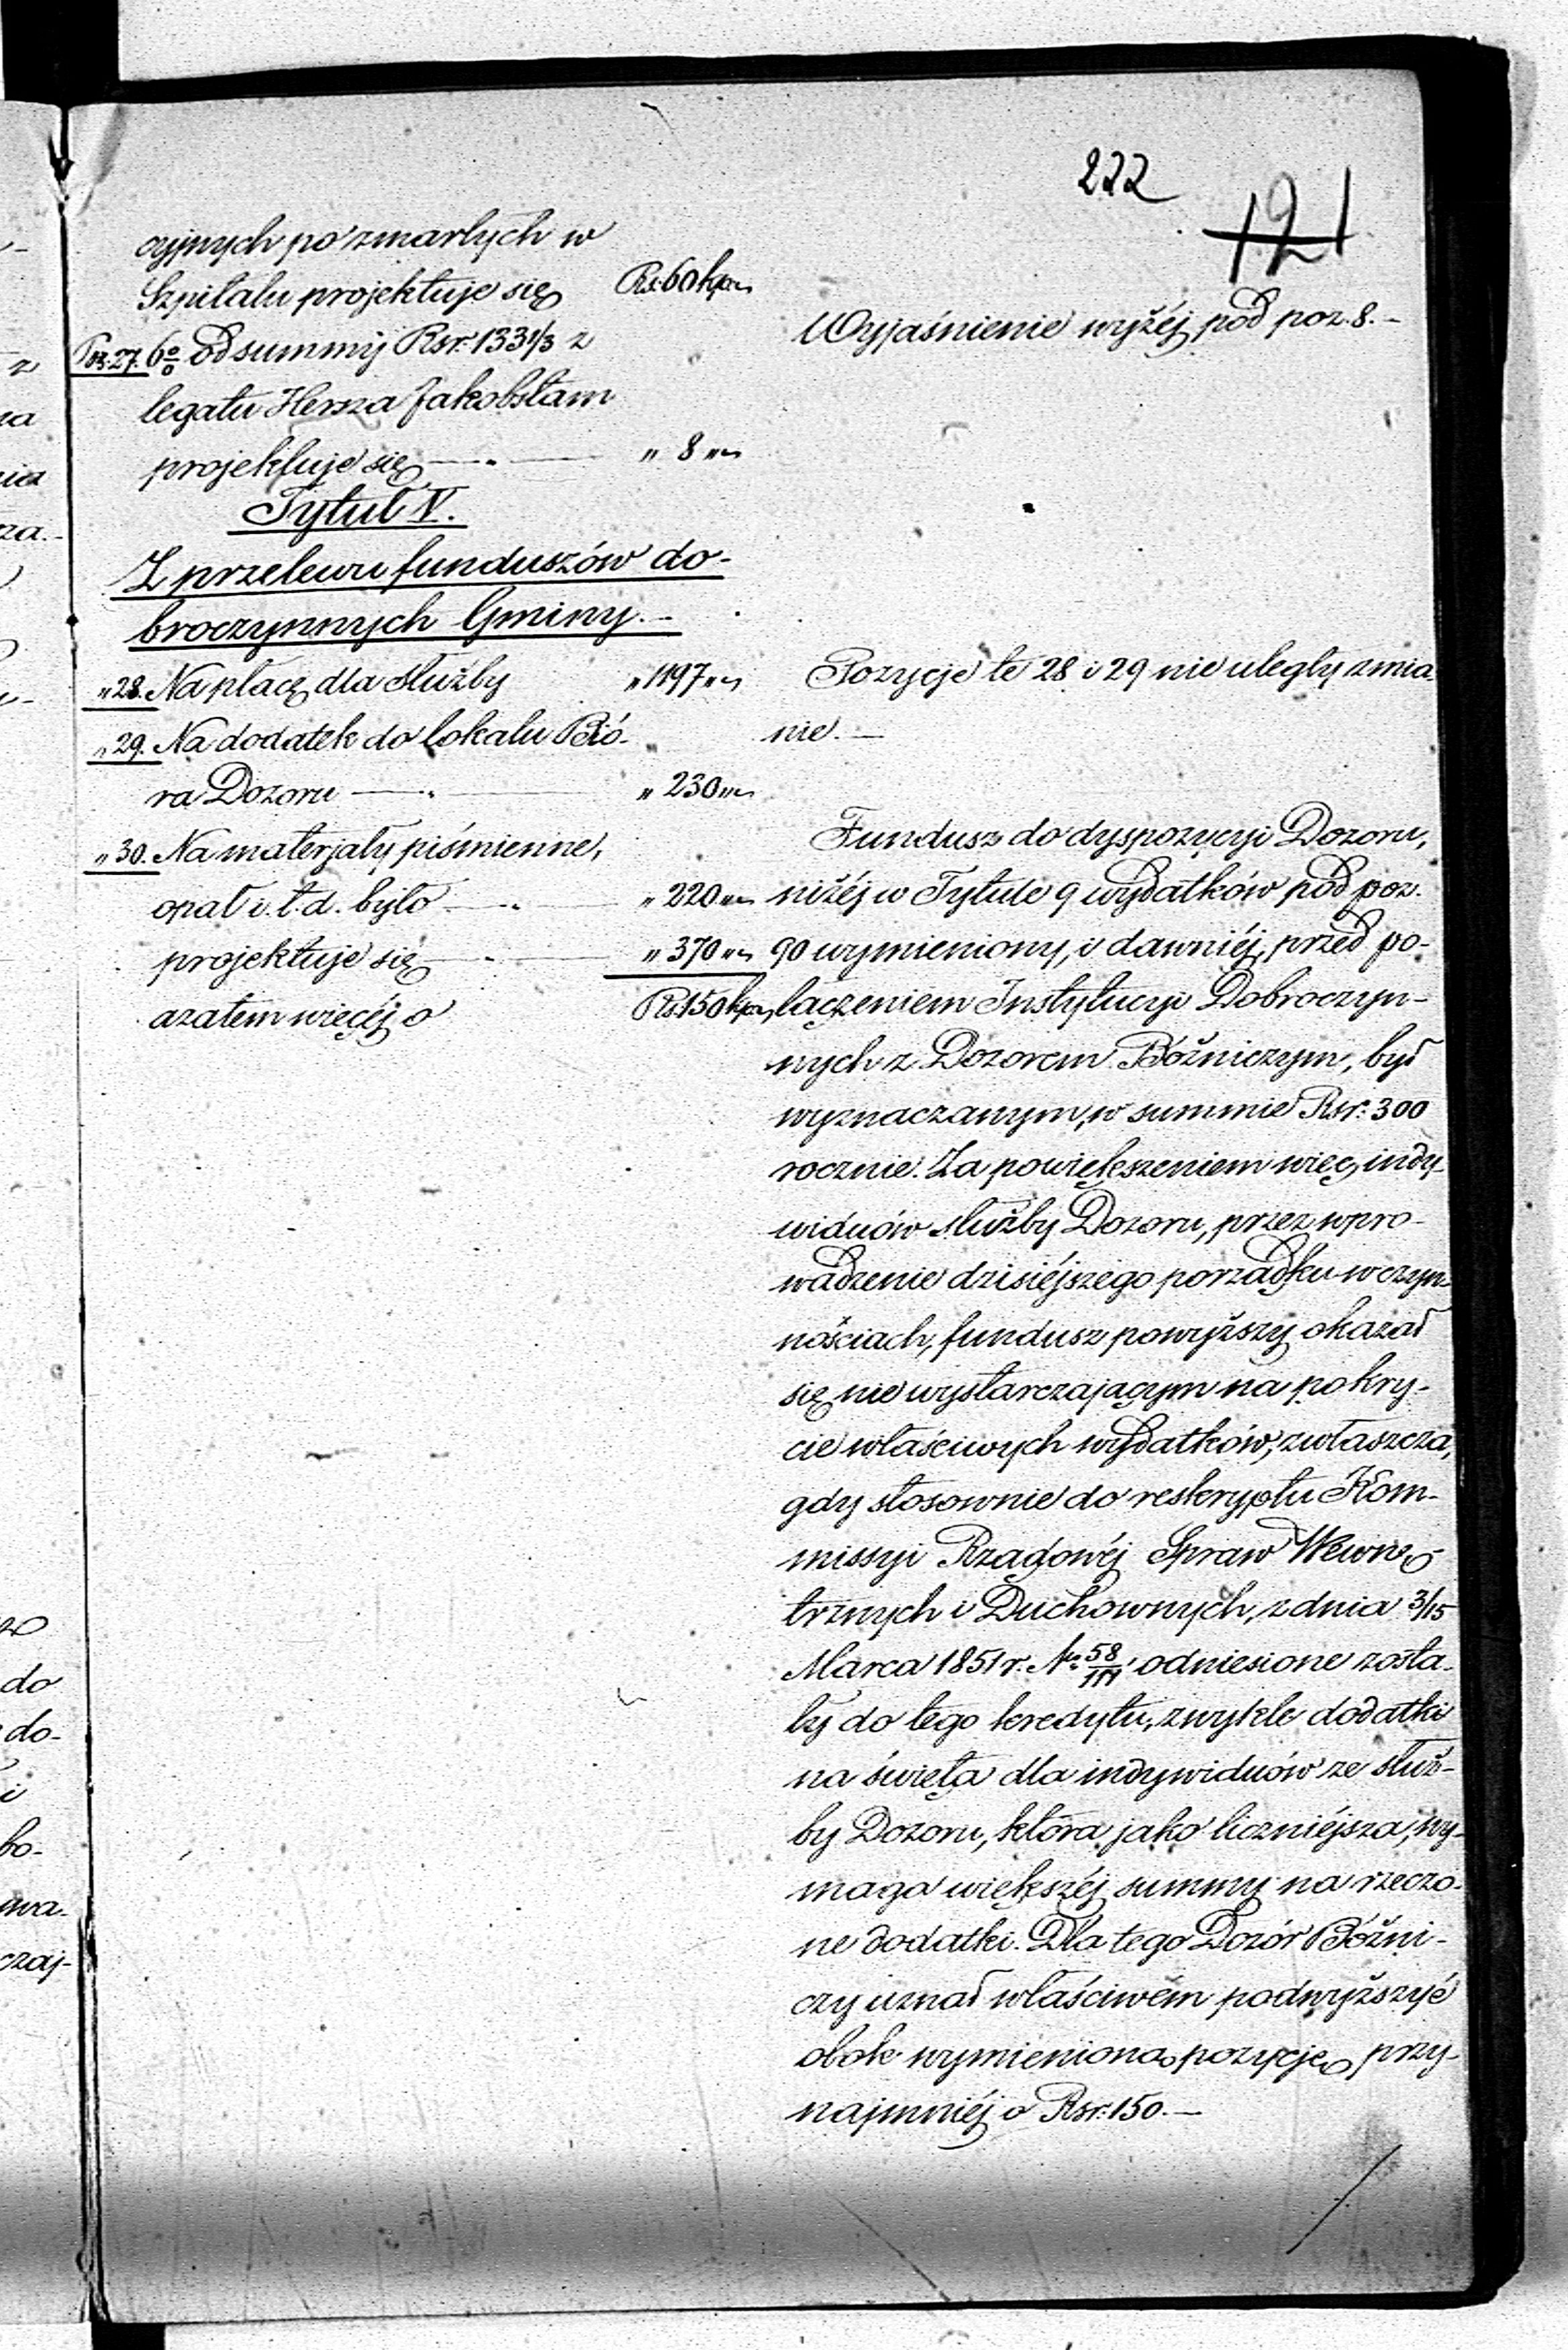 222
121
cyjnych po zmarłych w
Szpitalu projektuje się Rs. 60 kp „
Poz. 27. 6% od summy Rsr. 133 1/3 z
legatu Hersza Jakobsłam
projektuje się — „ — „ 8 „
Tytuł V.
Z przelewu funduszów do-
broczynnych Gminy. –
„ 28. Na płacę dla służby „ 1197 „
„ 29. Na dodatek do lokalu Bió-
ra Dozoru — „ — „ 230 „
„ 30. Na materjały piśmienne,
opał i. t. d. było — „ — „ 220 „
projektuje się — „ — „ 370 „
a zatem więcéj o Rs. 150 kp „
Wyjaśnienie wyżéj pod poz. 8. –
Pozycje te 28 i 29 nie uległy zmia-
nie. –
Fundusz do dyspozycyi Dozoru,
niżéj w Tytule 9 wydatków pod poz.
90 wymieniony, i dawniéj, przed po-
łączeniem Instytucyi Dobroczyn-
nych z Dozorem Bóżniczym, był
wyznaczanym, w summie Rsr. 300
rocznie. Za powiększeniem więc, indy-
widuów służby Dozoru, przez wpro-
wadzenie dzisiéjszego porządku w czyn-
nościach, fundusz powyższy okazał
się nie wystarczającym na pokry-
cie właściwych wydatków, zwłaszcza,
gdy stosownie do reskryptu Kom-
missyi Rządowéj Spraw Wewnę-
trznych i Duchownych, z dnia 3/15
Marca 1851 r. No 58/111, odniesione zosta-
ły do tego kredytu, zwykłe dodatki
na święta dla indywiduów ze służ-
by Dozoru, która jako liczniéjsza, wy-
maga większéj summy na rzeczo-
ne dodatki. Dla tego Dozór Bóżni-
czy uznał właściwém podwyższyć
obok wymienioną pozycję przy-
najmniéj o Rsr. 150. –